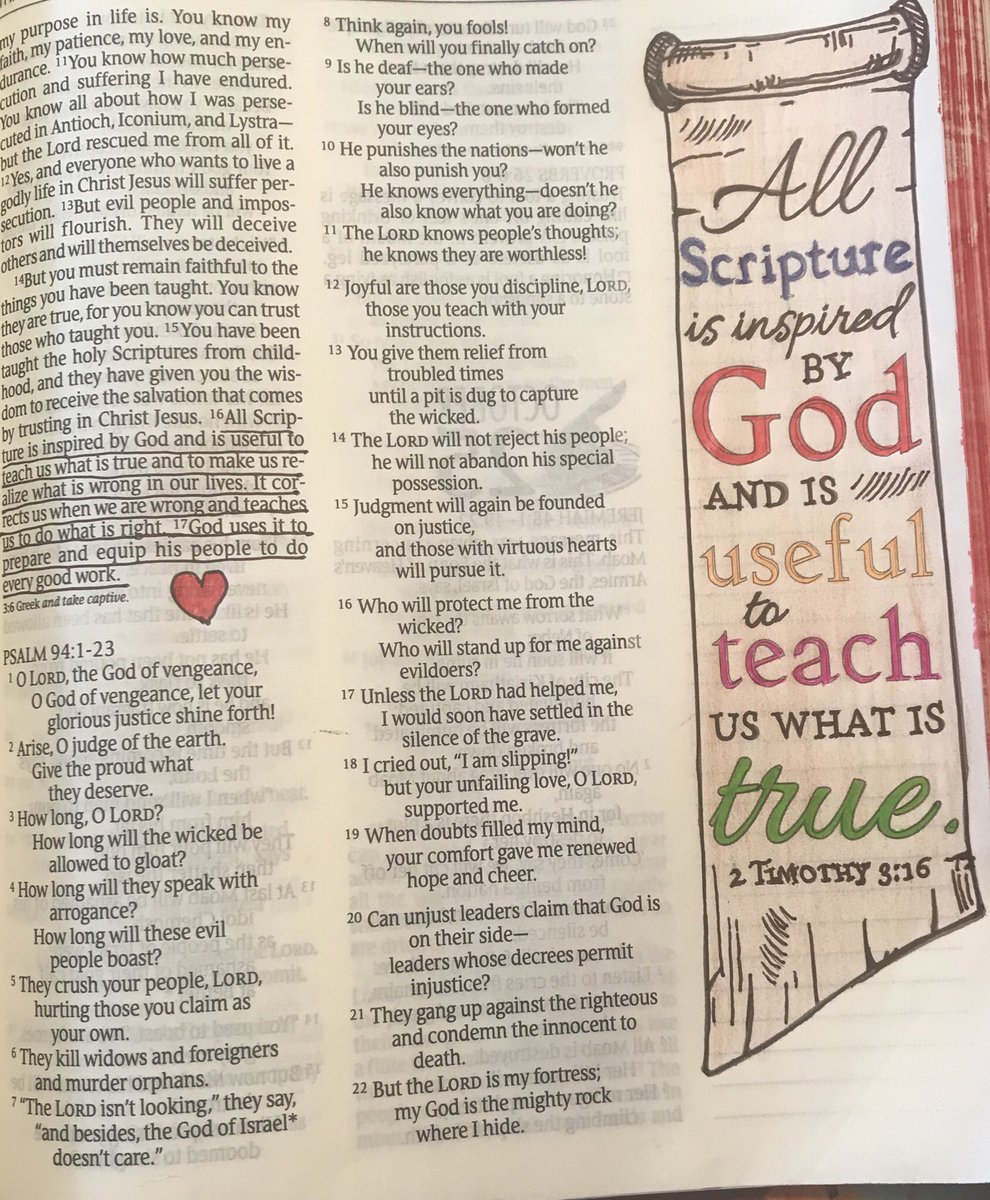 my purpose in life is. You know my
faith, my patience, my love, and my en-
durance. 11You know how much perse-
cution and suffering I have endured.
You know all about how I was perse-
cuted in Antioch, Iconium, and Lystra—
but the Lord rescued me from all of it.
12Yes, and everyone who wants to live a
godly life in Christ Jesus will suffer per-
secution. 13But evil people and impos-
tors will flourish. They will deceive
others and will themselves be deceived.
14But you must remain faithful to the
things you have been taught. You know
they are true, for you know you can trust
those who taught you. 15You have been
taught the holy Scriptures from child-
hood, and they have given you the wis-
dom to receive the salvation that comes
by trusting in Christ Jesus. 16All Scrip-
ture is inspired by God and is useful to
teach us what is true and to make us re-
alize what is wrong in our lives. It cor-
rects us when we are wrong and teaches
us to do what is right. 17God uses it to
prepare and equip his people to do
every good work.
3:6 Greek and take captive.
PSALM 94:1-23
1 O LORD, the God of vengeance,
O God of vengeance, let your
glorious justice shine forth!
2 Arise, O judge of the earth.
Give the proud what
they deserve.
3 How long, O LORD?
How long will the wicked be
allowed to gloat?
4 How long will they speak with
arrogance?
How long will these evil
people boast?
5 They crush your people, LORD,
hurting those you claim as
your own.
6 They kill widows and foreigners
and murder orphans.
7 "The LORD isn't looking," they say,
"and besides, the God of Israel*
doesn't care."
8 Think again, you fools!
When will you finally catch on?
9 Is he deaf—the one who made
your ears?
Is he blind—the one who formed
your eyes?
10 He punishes the nations—won't he
also punish you?
He knows everything—doesn't he
also know what you are doing?
11 The LORD knows people's thoughts;
he knows they are worthless!
12 Joyful are those you discipline, LORD,
those you teach with your
instructions.
13 You give them relief from
troubled times
until a pit is dug to capture
the wicked.
14 The LORD will not reject his people;
he will not abandon his special
possession.
15 Judgment will again be founded
on justice,
and those with virtuous hearts
will pursue it.
16 Who will protect me from the
wicked?
Who will stand up for me against
evildoers?
17 Unless the LORD had helped me,
I would soon have settled in the
silence of the grave.
18 I cried out, "I am slipping!"
but your unfailing love, O LORD,
supported me.
19 When doubts filled my mind,
your comfort gave me renewed
hope and cheer.
20 Can unjust leaders claim that God is
on their side—
leaders whose decrees permit
injustice?
21 They gang up against the righteous
and condemn the innocent to
death.
22 But the LORD is my fortress;
my God is the mighty rock
where I hide.
All
Scripture
is inspired
BY
God
AND IS
useful
to
teach
US WHAT IS
true.
2 TIMOTHY 3:16